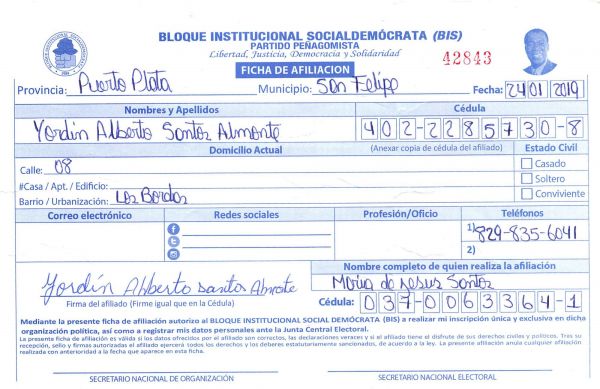 BLOQUE INSTITUCIONAL SOCIALDEMÓCRATA (BIS)
PARTIDO PEÑAGOMISTA
Libertad, Justicia, Democracia y Solidaridad
42843
FICHA DE AFILIACION
Provincia: Puerto Plata Municipio: San Felipe Fecha: 24 01 2019
Nombres y Apellidos Cédula
Yordin Alberto Santos Almonte 402-2285730-8
Domicilio Actual (Anexar copia de cédula del afiliado) Estado Civil
Calle: 08 Casado
#Casa / Apt. / Edificio: Soltero
Barrio / Urbanización: Los Bordas Conviviente
Correo electrónico Redes sociales Profesión/Oficio Teléfonos
1) 829-835-6041
2)
Nombre completo de quien realiza la afiliación
Yordin Alberto santos Almote Maria de Jesus Santos
Firma del afiliado (Firme igual que en la Cédula) Cédula: 037-0063364-1
Mediante la presente ficha de afiliación autorizo al BLOQUE INSTITUCIONAL SOCIAL DEMÓCRATA (BIS) a realizar mi inscripción única y exclusiva en dicha
organización política, así como a registrar mis datos personales ante la Junta Central Electoral.
La presente ficha de afiliación es válida si los datos ofrecidos por el afiliado son correctos, las declaraciones veraces y si el afiliado tiene el disfrute de sus derechos civiles y políticos. Tras su
recepción, sello y firmas autorizadas el afiliado ejercerá todos los derechos y los deberes estatutariamente sancionados, de acuerdo a la ley. La presente afiliación anula cualquier afiliación
realizada con anterioridad a la fecha que aparece en esta ficha.
SECRETARIO NACIONAL DE ORGANIZACIÓN SECRETARIO NACIONAL ELECTORAL